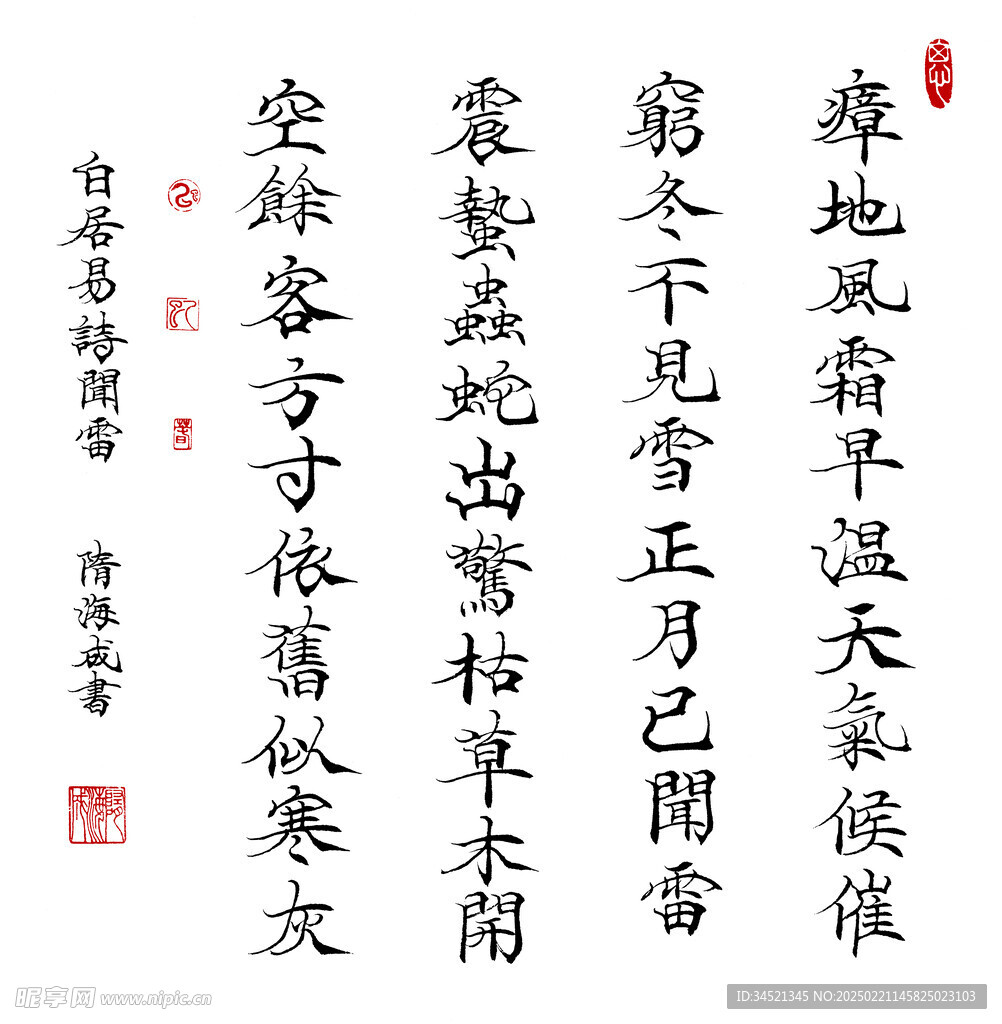 瘴地風霜早溫天氣候催
窮冬不見雪正月已聞雷
震蟄蟲蛇出驚枯草木開
空餘客方寸依舊似寒灰
白居易詩聞雷 隋海成書
昵享网 www.nipic.cn
ID:34521345 NO:20250221145825023103